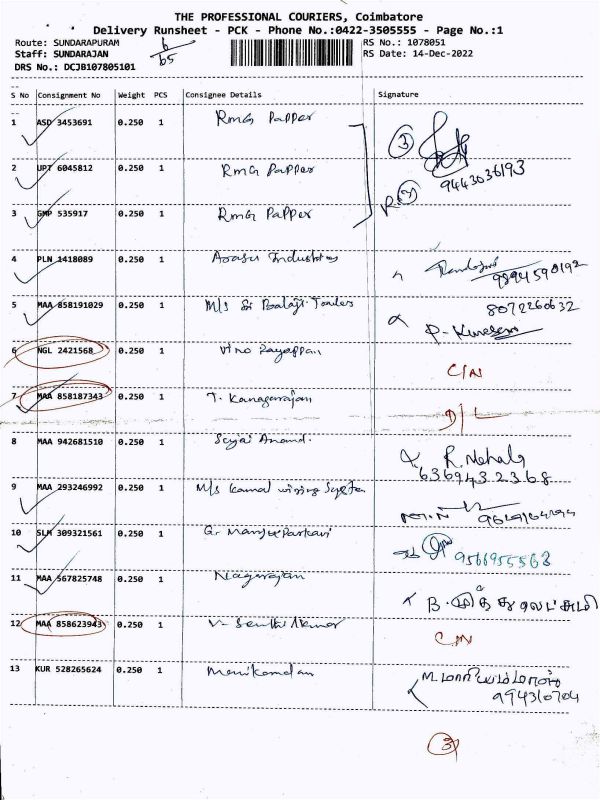 THE PROFESSIONAL COURIERS, Coimbatore
Delivery Runsheet - PCK - Phone No.:0422-3505555 - Page No.:1
Route: SUNDARAPURAM 6/65 RS No.: 1078051
Staff: SUNDARAJAN RS Date: 14-Dec-2022
DRS No.: DCJB107805101
S No Consignment No Weight PCS Consignee Details Signature
1 ASD 3453691 0.250 1 RMG Papper 3
2 UPT 6045812 0.250 1 RMG Papper 9443036193
3 GMP 535917 0.250 1 RMG Papper
4 PLN 1418089 0.250 1 Arasu Industries 9894590192
5 MAA 858191029 0.250 1 M/s Sri Balaji Traders 8072260632
6 NGL 2421568 0.250 1 Vino Rayappan C/N
7 MAA 858187343 0.250 1 T. Kanagarajan D/L
8 MAA 942681510 0.250 1 Anand. R. Mehala
6369432368
9 MAA 293246992 0.250 1 M/s Kamal wiring
10 SLM 309321561 0.250 1 G. 9566955563
11 MAA 567825748 0.250 1 Nagarajan B.
12 MAA 858623943 0.250 1 V. Senthilkumar C/N
13 KUR 528265624 0.250 1 Manikandan M.
994310704
3